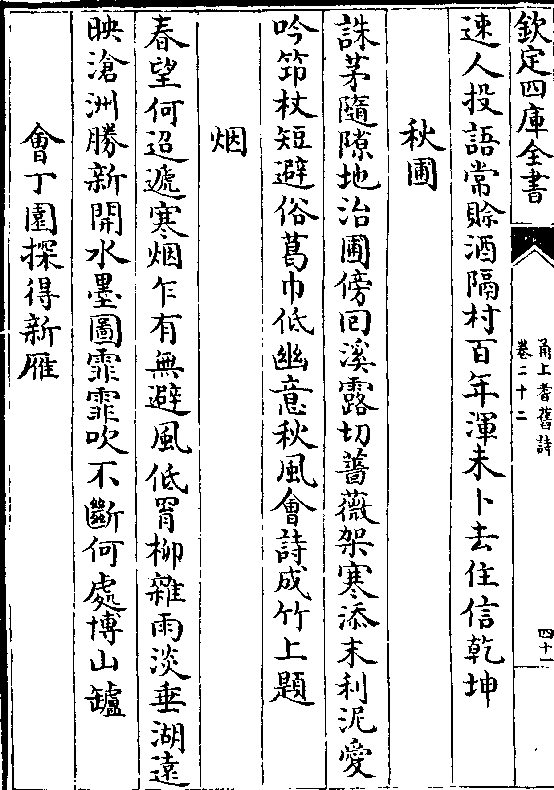 欽定四庫全書
甬上耆舊詩
卷二十二
四十一
速人投語常賒酒隔村百年渾未卜去住信乾坤
秋圃
誅茅隨隙地治圃傍回溪露切薔薇架寒添末利泥愛
吟笻杖短避俗葛巾低幽意秋風會詩成竹上題
烟
春望何迢遞寒烟乍有無避風低罥柳雜雨淡垂湖遠
映滄洲勝新開水墨圖霏霏吹不斷何處博山罏
會丁園探得新雁